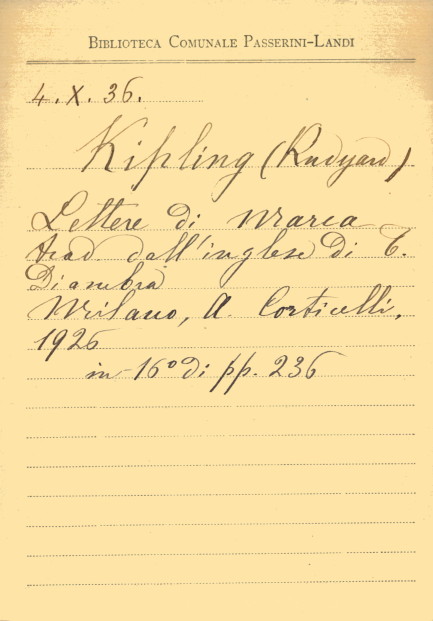 BIBLIOTECA COMUNALE PASSERINI-LANDI
4. X. 36.
Kipling (Rudyard)
Lettere di marca
trad. dall'inglese di C.
Diambra
Milano, A. Corticelli,
1926
in 16° di pp. 236